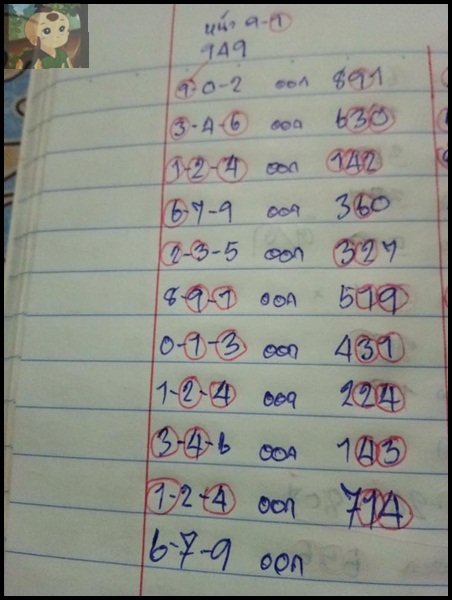 หน้า 9-1
149
1-0-2 ออก 891
3-4-6 ออก 630
1-2-4 ออก 142
6-7-9 ออก 360
2-3-5 ออก 327
8-9-1 ออก 519
0-1-3 ออก 431
1-2-4 ออก 224
3-4-6 ออก 143
1-2-4 ออก 714
6-7-9 ออก